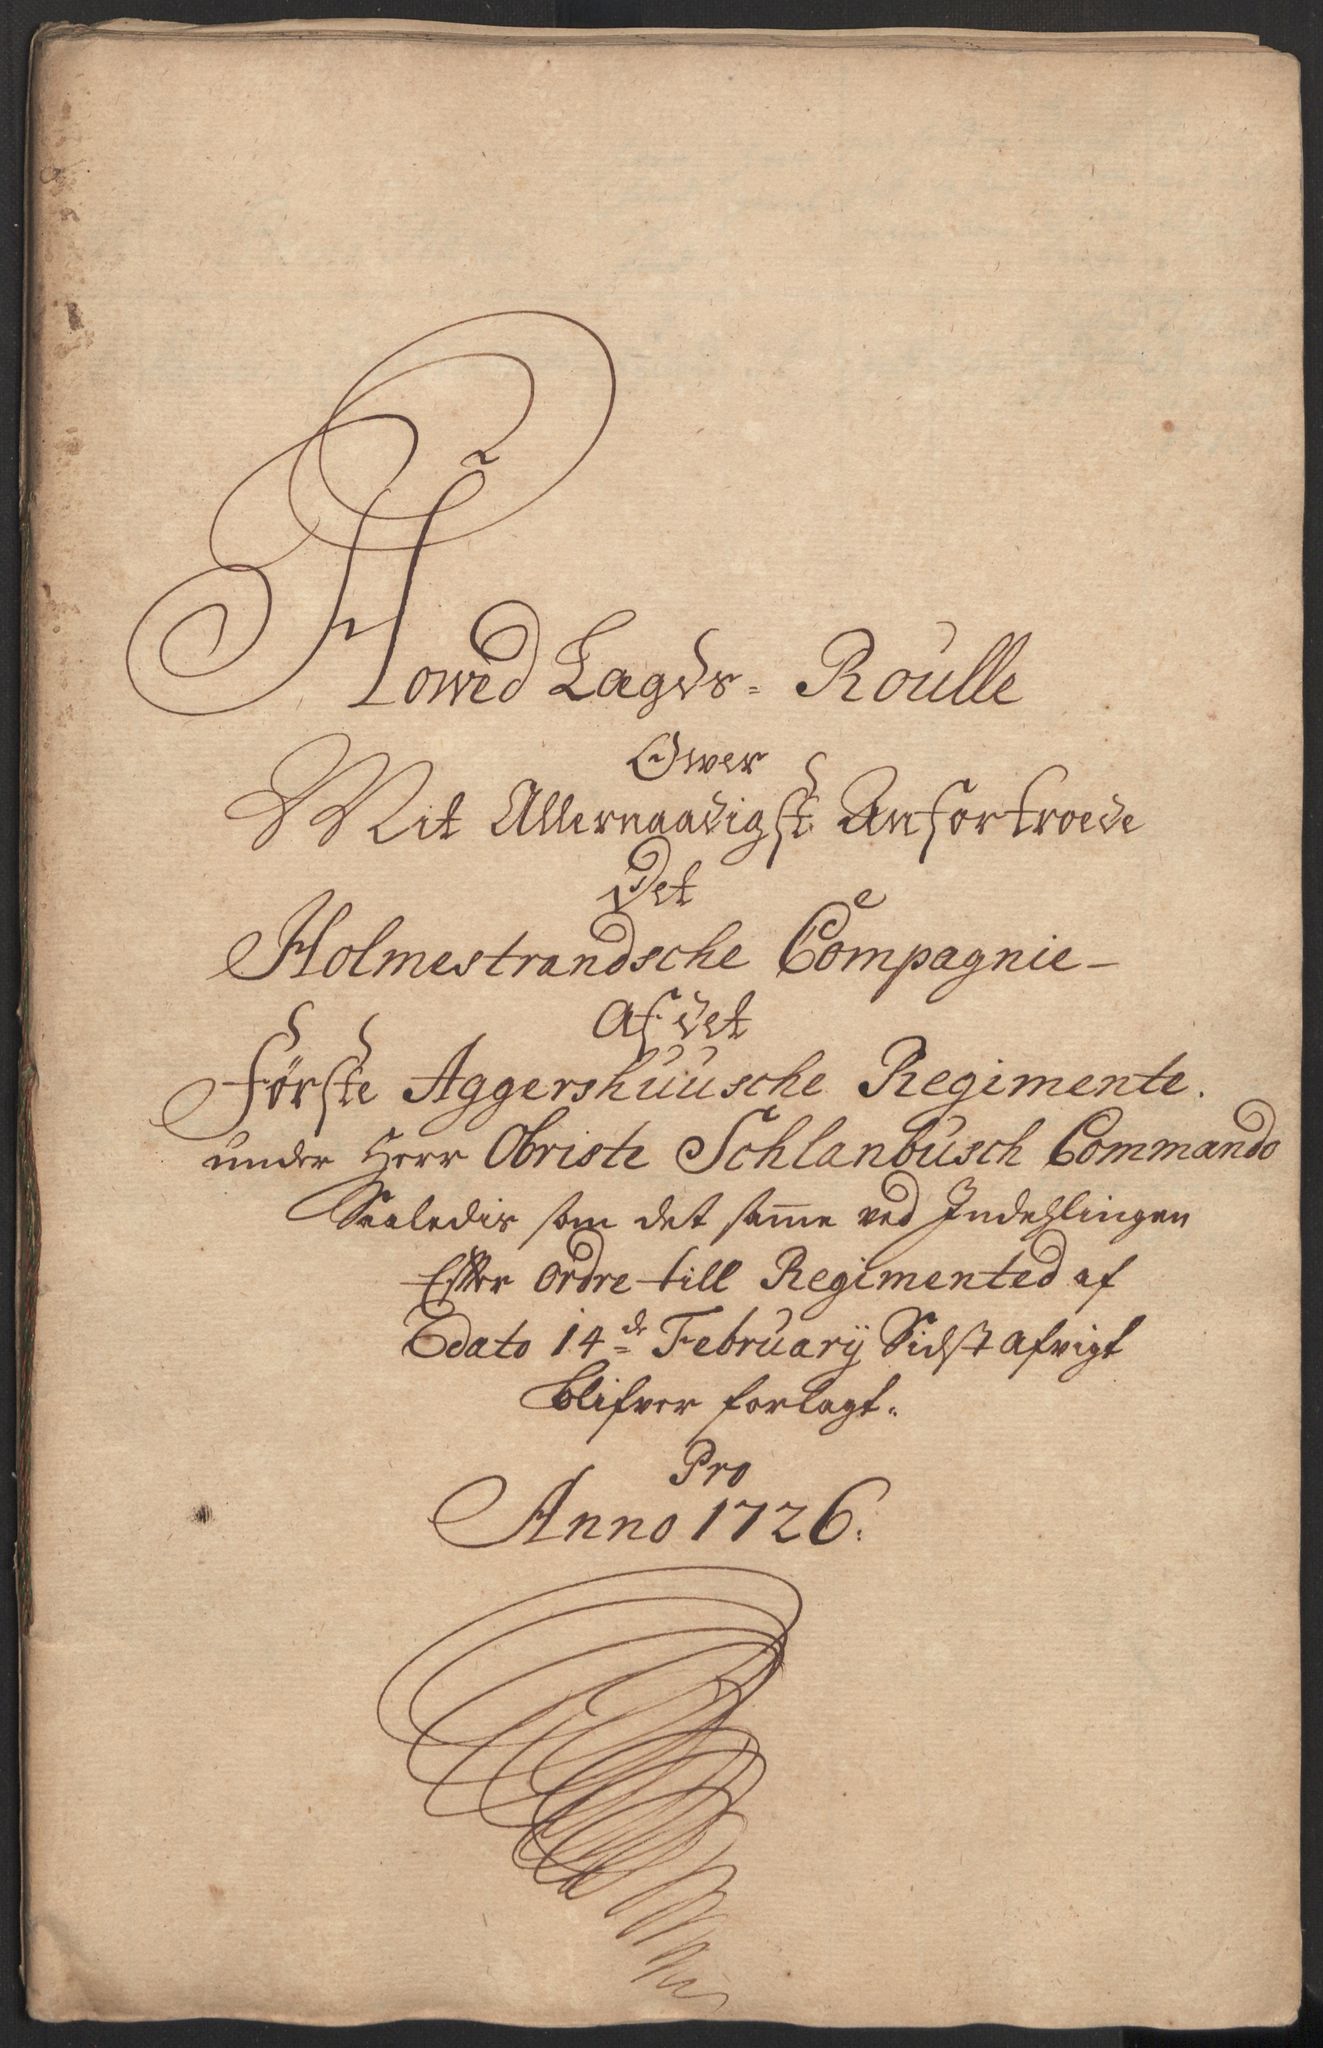 Howed Lagds- Roulle
Over
Mit Allernaadigst Anfortroede
Det
Holmestrandsche Compagnie-
Af det
Første Aggershuusche Regimente.
under Herr Obriste Schlanbusch Commando
Saaledis som det same ved Indehlingen
Efter Ordre till Regimented af
Dato 14de February Sidst afvigt
blifver forlagt.
Pro
Anno 1726.